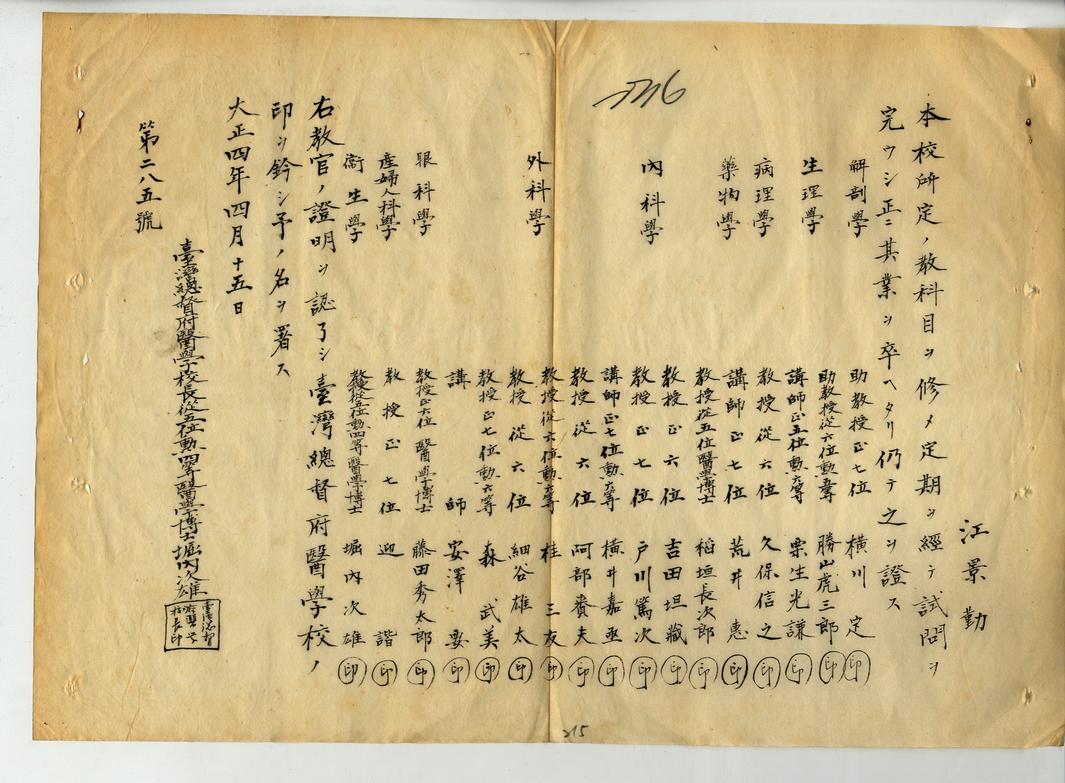 江景勤
本校所定ノ敎科目ヲ修メ定期ヲ經テ試問ヲ
完ウシ正ニ其業ヲ卒ヘタリ仍テ之ヲ證ス
解剖學 助敎授正七位 橫川 定 印
助敎授從六位勳五等 勝山虎三郎 印
生理學 講師正五位勳六等 栗生光謙 印
病理學 敎授從六位 久保信之 印
藥物學 講師正七位 荒井 惠 印
敎授從五位醫學博士 稻垣長次郎 印
敎授正六位 吉田坦藏 印
內科學 敎授正七位 戶川篤次 印
講師正七位勳六等 橫井嘉亟 印
敎授從六位 阿部賚夫 印
外科學 敎授從六位勳六等 桂 三友 印
敎授從六位 細谷雄太 印
敎授正七位勳六等 森 武美 印
講師 安澤 要 印
眼科學 敎授正六位醫學博士 藤田秀太郎 印
產婦人科學 敎授正七位 迎 諧 印
衞生學 敎授從五位勳四等醫學博士 堀內次雄 印
右敎官ノ證明ヲ認了シ臺灣總督府醫學校ノ
印ヲ鈐シ予ノ名ヲ署ス
大正四年四月十五日
臺灣總督府醫學校長從五位勳四等醫學博士堀內次雄
臺灣總督
府醫學
校長印
第二八五號
215